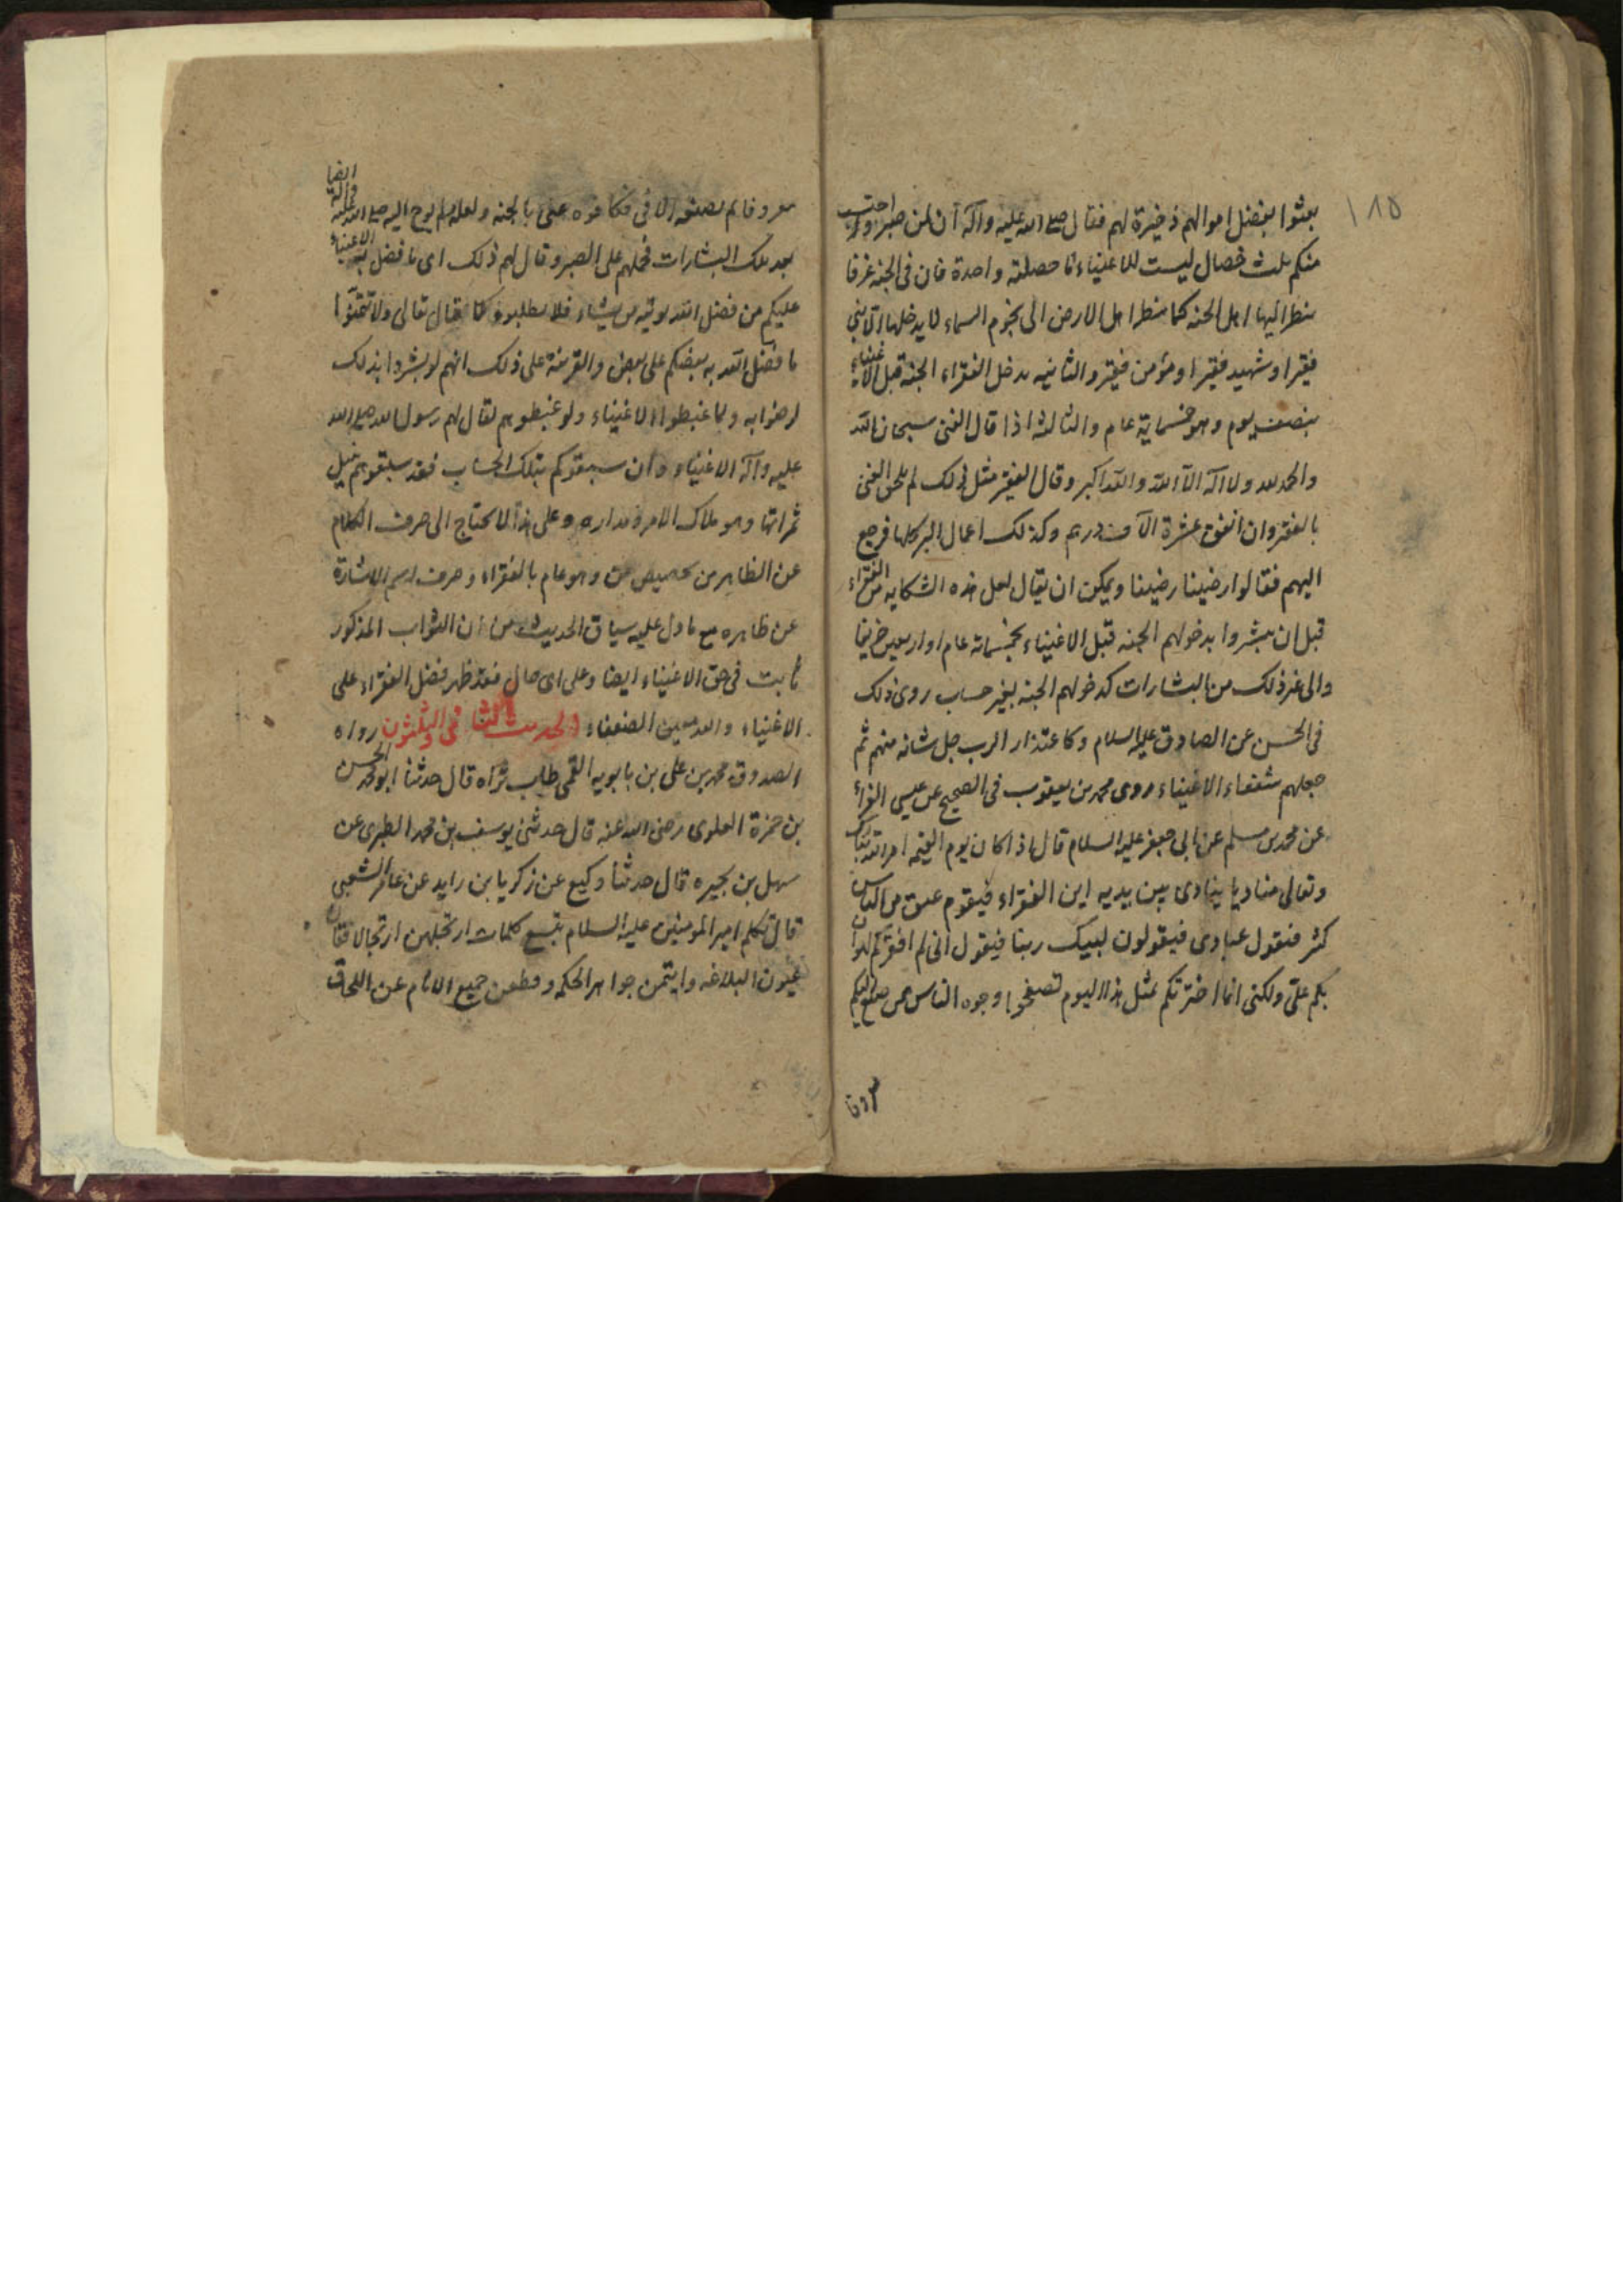 ١٨٥
بعثوا بفضل اموالهم ذخيرة لهم فقال صلى الله عليه وآله ان لمن صبر واحتسب
منكم ثلث خصال ليست للاغنياء اما خصلة واحدة فان فى الجنة غرفا
ينظر اليها اهل الجنه كما ينظر اهل الارض الى نجوم السماء لا يدخلها الا نبى
فقير او شهيد فقير او مؤمن فقير والثانيه يدخل الفقراء الجنة قبل الاغنياء
بنصف يوم وهو خمسماية عام والثالثه اذا قال الغنى سبحان الله
والحمد لله ولا اله الا الله والله اكبر وقال الفقير مثل ذلك لم يلحق الغنى
بالفقير وان انفق عشرة آلاف درهم وكذلك اعمال البر كلها فرجع
اليهم فقالوا رضينا رضينا ويمكن ان يقال لعل هذه الشكايه من الفقراء
قبل ان بشروا بدخولهم الجنه قبل الاغنياء بخمسمائة عام او اربعين خريفا
والى غير ذلك من البشارات كدخولهم الجنة بغير حساب روى ذلك
فى الحسن عن الصادق عليه السلام وكاعتذار الرب جل شانه منهم ثم
جعلهم شفعاء الاغنياء روى محمد بن يعقوب فى الصحيح عن عيسى الفراء
عن محمد بن مسلم عن ابى جعفر عليه السلام قال اذا كان يوم القيمه امر الله تبارك
وتعالى مناديا ينادى بين يديه اين الفقراء فيقوم عنق من الناس
كثير فيقول عبادى فيقولون لبيك ربنا فيقول انى لم افقركم لهوان
بكم على ولكنى انما اخترتكم لمثل هذا اليوم تصفحوا وجوه الناس فمن صنع اليكم
معروفا
معروفا لم يصنعه الا فى فكافوه عنى بالجنه ولعله لم يوح اليه صلى الله عليه وآله ايضا
بعد تلك البشارات فحملهم على الصبر وقال لهم ذلك اى ما فضل به الاغنياء
عليكم من فضل الله يوتيه من يشاء فلا تطلبوه كما قال تعالى ولا تتمنوا
ما فضل الله به بعضكم على بعض والقرينة على ذلك انهم لو بشروا بذلك
لرضوا به ولما غبطوا الاغنياء ولو غبطوهم لقال لهم رسول الله صلى الله
عليه وآله الاغنياء وان سبقوكم بتلك الحساب فقد سبقتموهم بنيل
ثمراتها وهو ملاك الامر ومداره وعلى هذا لا يحتاج الى صرف الكلام
عن الظاهر من تخصيص من وهو عام بالفقراء وصرف اسم الاشارة
عن ظاهره مع ما دل عليه سياق الحديث من ان الثواب المذكور
ثابت فى حق الاغنياء ايضا وعلى اى حال فقد ظهر فضل الفقراء على
الاغنياء والله معين الضعفاء الحديث الثانى والثلثون رواه
الصدوق محمد بن على بن بابويه القمى طاب ثراه قال حدثنا ابو محمد الحسن
بن حمزة العلوى رضى الله عنه قال حدثنى يوسف بن محمد الطبرى عن
سهل بن نجيره قال حدثنا وكيع عن زكريا بن زايد عن عامر الشعبى
قال تكلم امير المؤمنين عليه السلام بتسع كلمات ارتجلهن ارتجالا فقان
عيون البلاغه وايتمن جواهر الحكمه وقطعن جميع الانام عن اللحاق